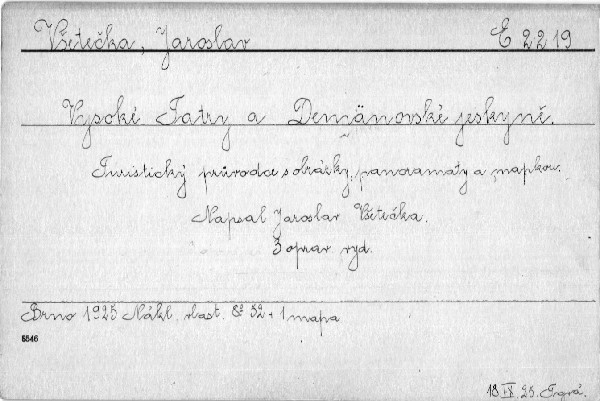 Všetečka, Jaroslav E 2219
Vysoké Tatry a Demänovské jeskyně.
Turistický průvodce s obrázky, panoramaty a mapkou.
Napsal Jaroslav Všetečka.
3 oprav. vyd.
Brno 1925 Nákl. vlast. 8° 52 + 1 mapa
5546
18 IX. 25.